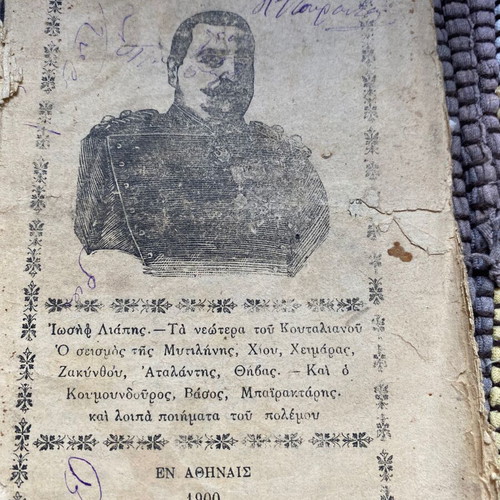 Ἰωσὴφ Λιάπης.—Τὰ νεώτερα τοῦ Κουταλιανοῦ
Ὁ σεισμὸς τῆς Μυτιλήνης, Χίου, Χειμάρας,
Ζακύνθου, Ἀταλάντης, Θήβας. — Καὶ ὁ
Κουμουνδοῦρος, Βάσος, Μπαϊρακτάρης.
καὶ λοιπὰ ποιήματα τοῦ πολέμου
ΕΝ ΑΘΗΝΑΙΣ
1900